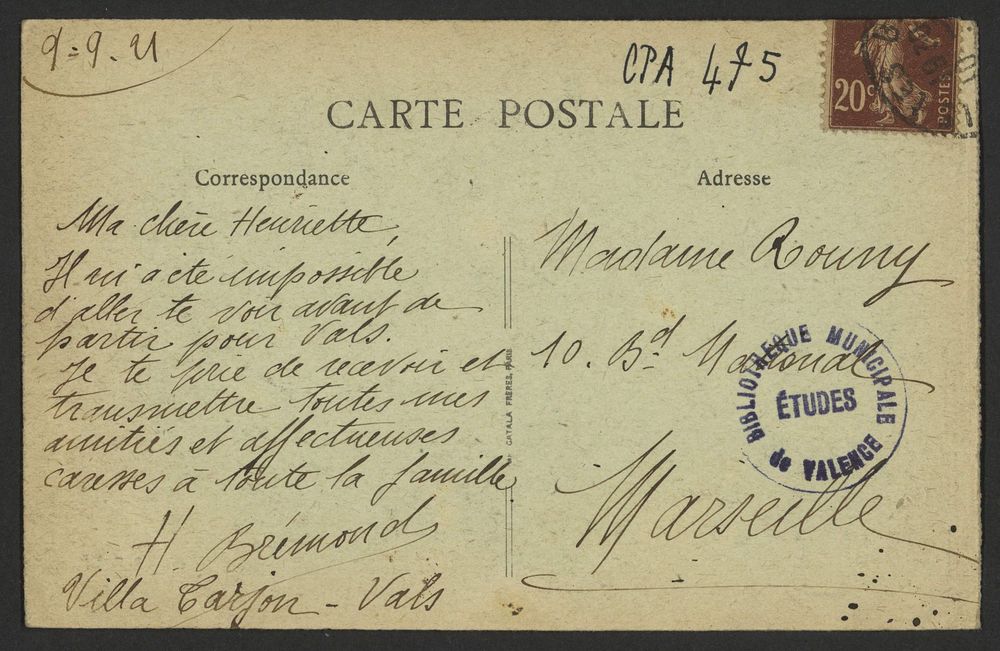 9=9.21
CPA 475
20c
POSTES
CARTE POSTALE
Correspondance
Ma chère Henriette,
Il m'a été impossible
d'aller te voir avant de
partir pour Vals.
Je te prie de recevoir et
transmettre toutes mes
amitiés et affectueuses
caresses à toute la famille
H. Brémond
Villa Tarjon - Vals
CATALA FRERES, PARIS
Adresse
Madame Rouny
10. Bd. National
Marseille
BIBLIOTHEQUE MUNICIPALE
ÉTUDES
de VALENCE